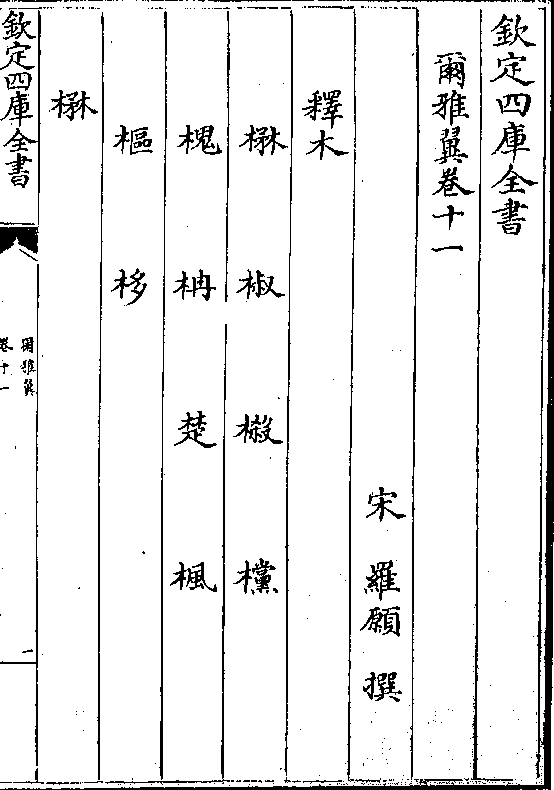 欽定四庫全書
爾雅翼卷十一
宋 羅願 撰
釋木
楙 椒 樧 欓
槐 柟 楚 楓
樞 栘
楙
欽定四庫全書
爾雅翼
卷十一
一